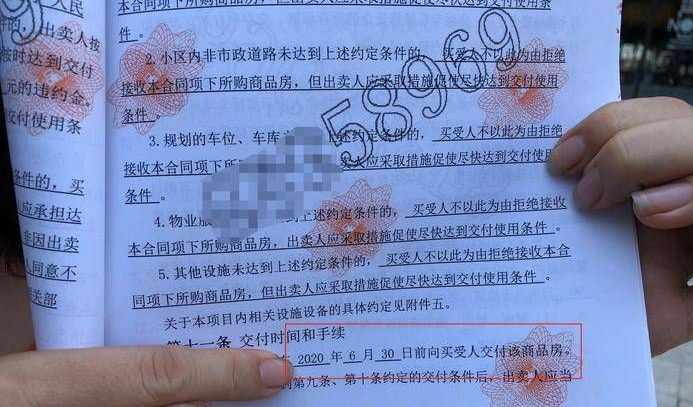 人民
本合同项下所购商品房，但出卖人应采取措施促使尽快达到交付使用条
件 。
2.小区内非市政道路未达到上述约定条件的， 买受人不以此为由拒绝
接收本合同项下所购商品房，但出卖人应采取措施促使尽快达到交付使用
条件 。
3.规划的车位、车库 上述约定条件的， 买受人不以此为由拒绝
接收本合同项下所购 卖人应采取措施促使尽快达到交付使用
条件 。
4.物业服 到上述约定条件的， 买受人不以此为由拒绝接收
本合同项下所购商品房，出卖人应采取措施促使尽快达到交付使用条件 。
5.其他设施未达到上述约定条件的， 买受人不以此为由拒绝接收本合
同项下所购商品房，但出卖人应采取措施促使尽快达到交付使用条件 。
关于本项目内相关设施设备的具体约定见附件五。
第十一条 交付时间和手续
2020 年 6 月 30 日前向买受人交付该商品房。
第九条、第十条约定的交付条件后，出卖人应当
58969
出卖人按
按时达到交付
元的违约金。
交付使用条
条件的， 买
应承担达
非因出卖
人同意不
关部